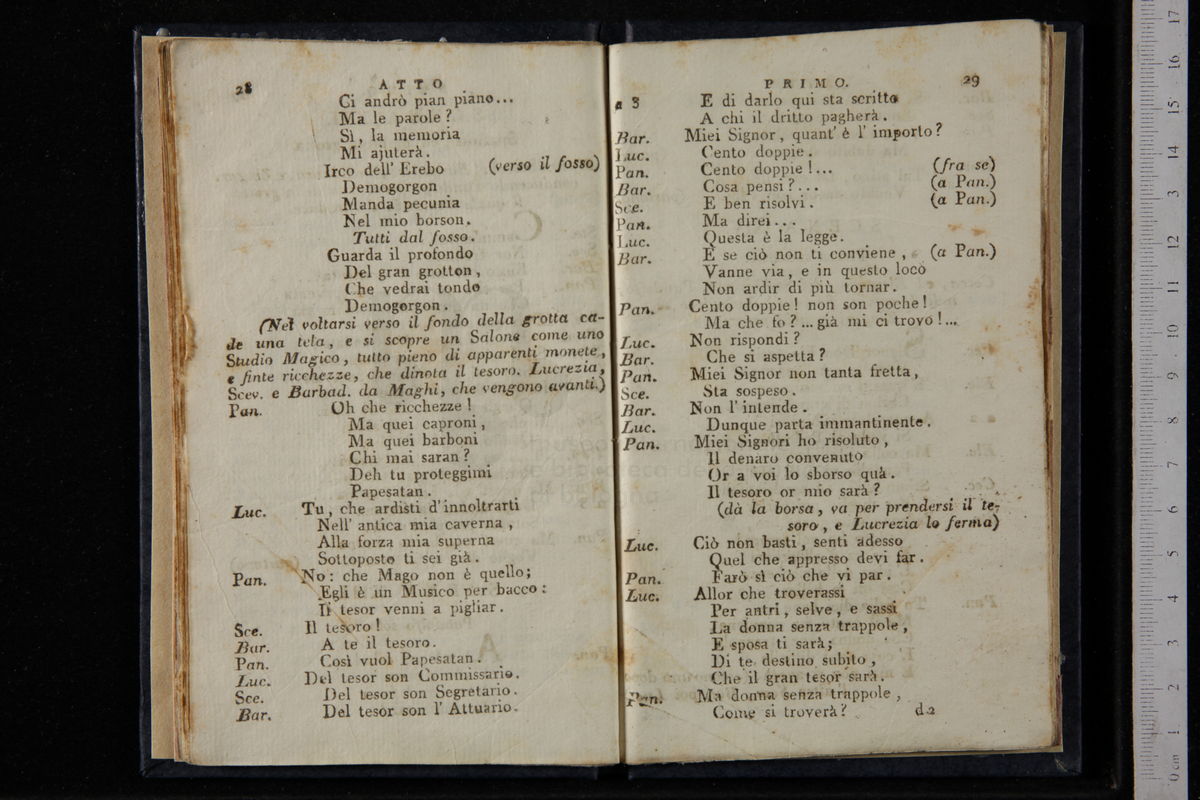 28
ATTO
Ci andrò pian piano...
Ma le parole?
Sì, la memoria
Mi ajuterà.
Irco dell' Erebo (verso il fosso)
Demogorgon
Manda pecunia
Nel mio borson.
Tutti dal fosso.
Guarda il profondo
Del gran grotton,
Che vedrai tondo
Demogorgon.
(Nel voltarsi verso il fondo della grotta ca-
de una tela, e si scopre un Salone come uno
Studio Magico, tutto pieno di apparenti monete,
e finte ricchezze, che dinota il tesoro. Lucrezia,
Scev. e Barbad. da Maghi, che vengono avanti.)
Pan. Oh che ricchezze!
Ma quei caproni,
Ma quei barboni
Chi mai saran?
Deh tu proteggimi
Papesatan.
Luc. Tu, che ardisti d'innoltrarti
Nell' antica mia caverna,
Alla forza mia superna
Sottoposto ti sei già.
Pan. No: che Mago non è quello;
Egli è un Musico per bacco:
Il tesor venni a pigliar.
Sce. Il tesoro!
Bar. A te il tesoro.
Pan. Così vuol Papesatan.
Luc. Del tesor son Commissario.
Sce. Del tesor son Segretario.
Bar. Del tesor son l' Attuario.
PRIMO.
29
a 3 E di darlo qui sta scritto
A chi il dritto pagherà.
Bar. Miei Signor, quant' è l' importo?
Luc. Cento doppie.
Pan. Cento doppie!... (fra se)
Bar. Cosa pensi?... (a Pan.)
Sce. E ben risolvi. (a Pan.)
Pan. Ma direi...
Luc. Questa è la legge.
Bar. E se ciò non ti conviene, (a Pan.)
Vanne via, e in questo loco
Non ardir di più tornar.
Pan. Cento doppie! non son poche!
Ma che fo?... già mi ci trovo!...
Luc. Non rispondi?
Bar. Che si aspetta?
Pan. Miei Signor non tanta fretta,
Sce. Sta sospeso.
Bar. Non l'intende.
Luc. Dunque parta immantinente.
Pan. Miei Signori ho risoluto,
Il denaro convenuto
Or a voi lo sborso quà.
Il tesoro or mio sarà?
(dà la borsa, va per prendersi il te-
soro, e Lucrezia lo ferma)
Luc. Ciò non basti, senti adesso
Quel che appresso devi far.
Pan. Farò sì ciò che vi par.
Luc. Allor che troverassi
Per antri, selve, e sassi
La donna senza trappole,
E sposa ti sarà;
Di te destino subito,
Che il gran tesor sarà.
Pan. Ma donna senza trappole,
Come si troverà?
da